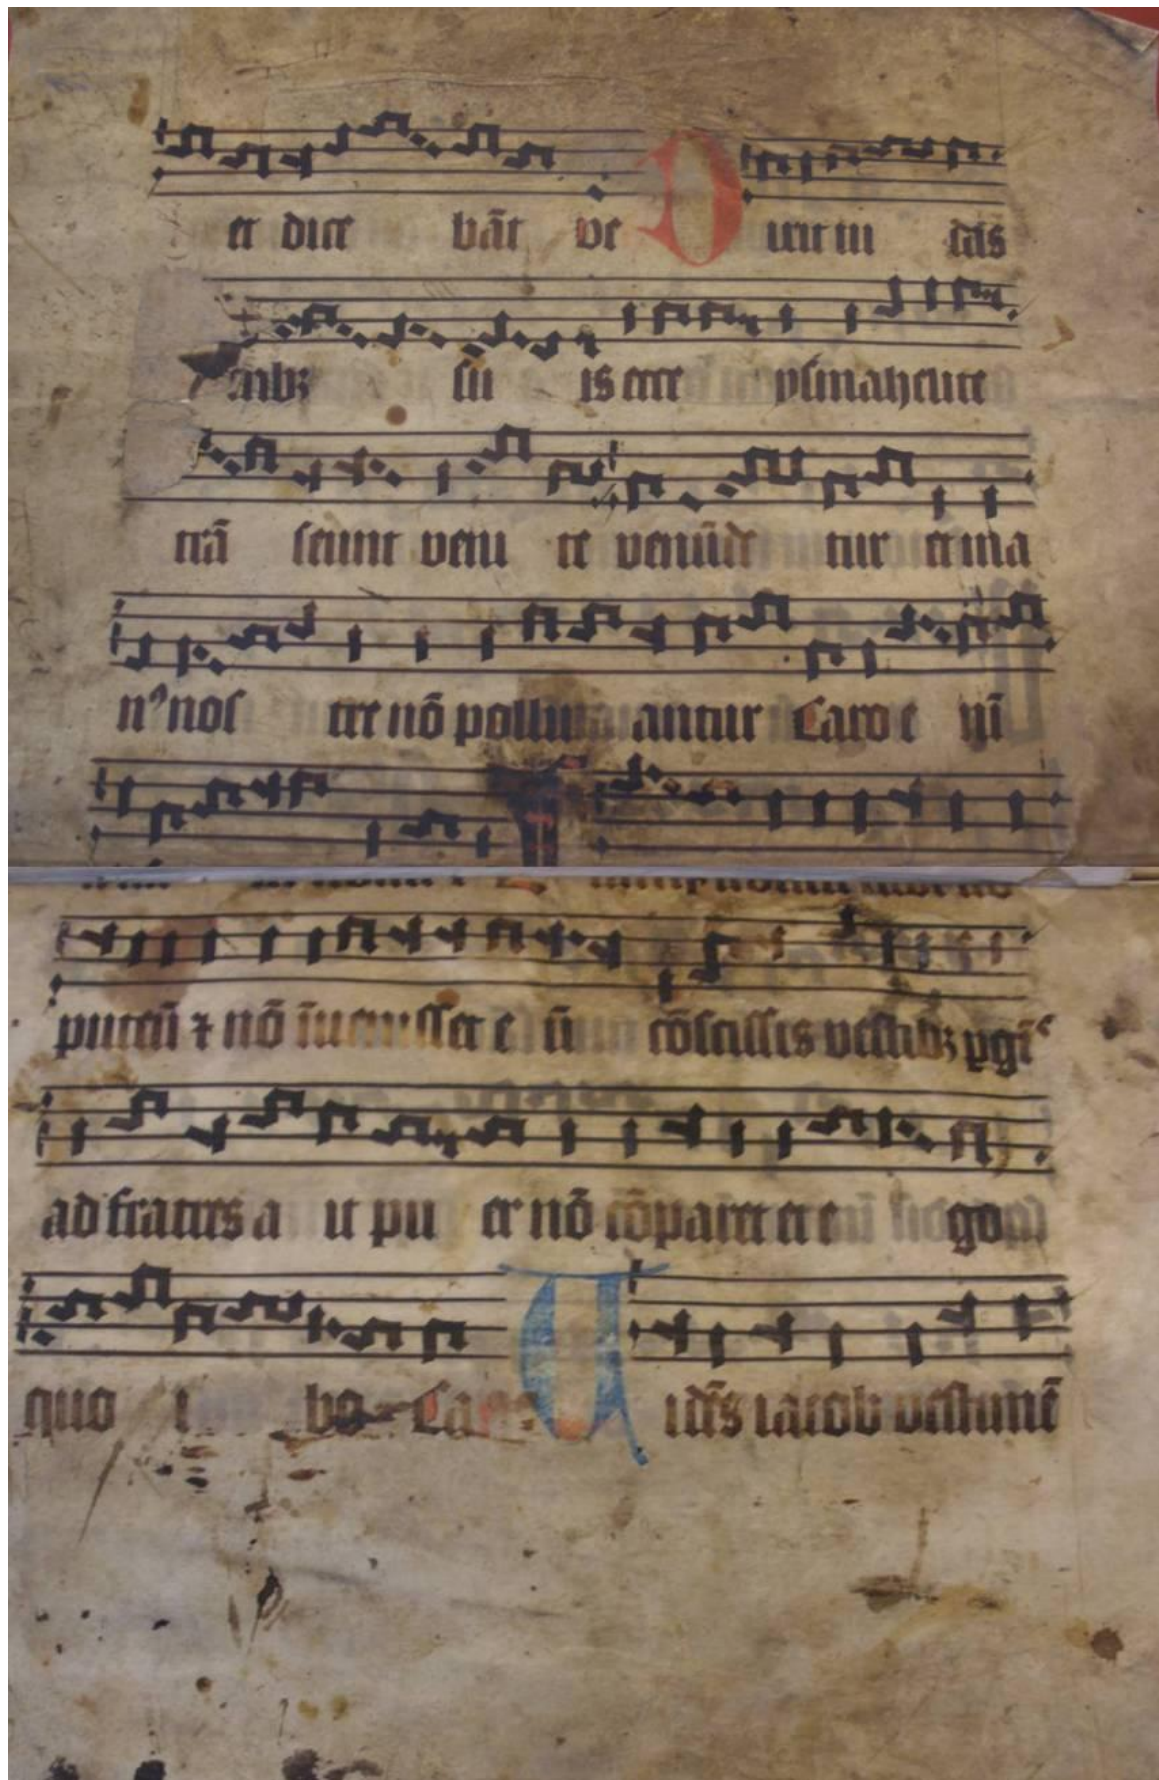 et dice bāt ve Dixit iu das
tribꝫ su is ecce ysmahelite
trāseunt veni te venūde tur et ma
nꝰ nostre nō polluantur Caro e nī
puteū ⁊ nō īuenisset eū cōscissis vestibꝫ ꝑgīt
ad fratres a it pu er nō cōparet et e go
quo i bo Caro Uidēs iacob vestimē